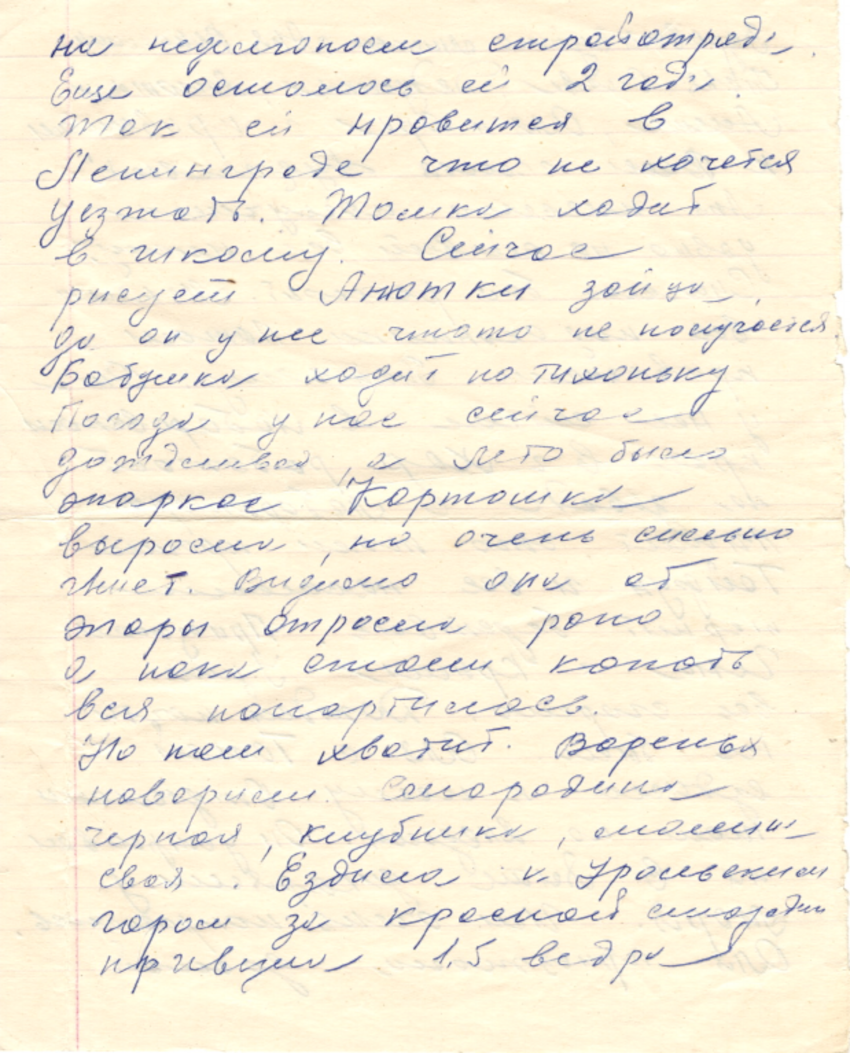 на стройотряд.
Еще осталось ей 2 года.
Так ей нравится в
Ленинграде что не хочется
уезжать. Томка ходит
в школу. Сейчас
рисует Анютки зайца,
да он у нее чтото не получается.
Бабушка ходит по тихоньку
Погода у нас сейчас
дождливая, а лето было
жаркое Картошка
выросла, но очень сильно
гниет. Видимо она от
жары отросла рано
а пока стали копать
вся попортилась.
Но нам хватит. Варенья
наварили. Смородина
черная, клубника,
своя. Ездила к Уральским
горам за красной смородин
привезла 1.5 ведра